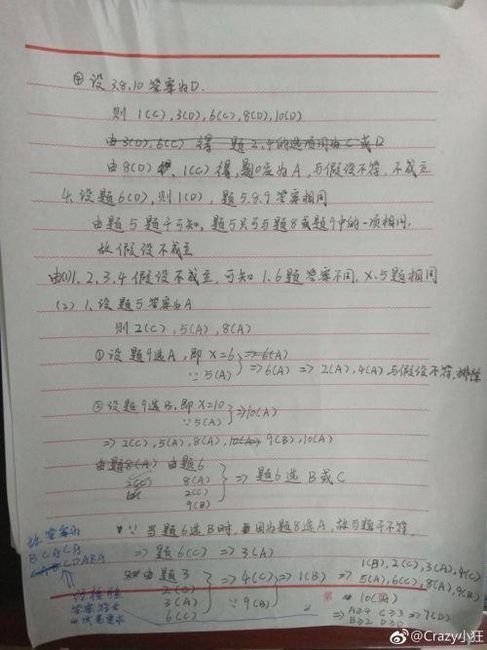 ④设 3.8.10 答案为D.
则 1(C),3(D),6(C),8(D),10(D)
由3(D),6(C) 得 题2,4的选项同为C或D
由8(D) 、1(C)得,题10应为A,与假设不符,不成立
4.设题6(D),则1(D),题5.8.9答案相同
由题5题干可知,题5只可与题8或题9中的一项相同,
故假设不成立
由(1)1,2,3,4假设不成立,可知1.6题答案不同,X.5题相同
(2) 1.设题5答案为A
则2(C),5(A),8(A)
①设题9选A,即X=6 ∵5(A) }⇒6(A) ⇒2(A),4(A)与假设不符,排除
②设题9选B,即X=10 ∵5(A) }⇒10(A)
⇒2(C),5(A),8(A), 9(B),10(A)
由题6
8(A)
2(C)
9(B) }⇒题6选B或C
∵当题6选B时, 因为题8选A,故与题干不符.
⇒题6(C)⇒3(A)
由题3
2(C)
3(A)
6(C) }⇒4(C) ∵9(B) }⇒1(B)
1(B),2(C),3(A),4(C)
5(A),6(C),8(A),9(B)
10(A)
⇒A≥4 C≥3
B≥2 D≥0 ⇒7(D)
故答案为
BCACA
CDABA
经检验
答案符合
@Crazy小狂